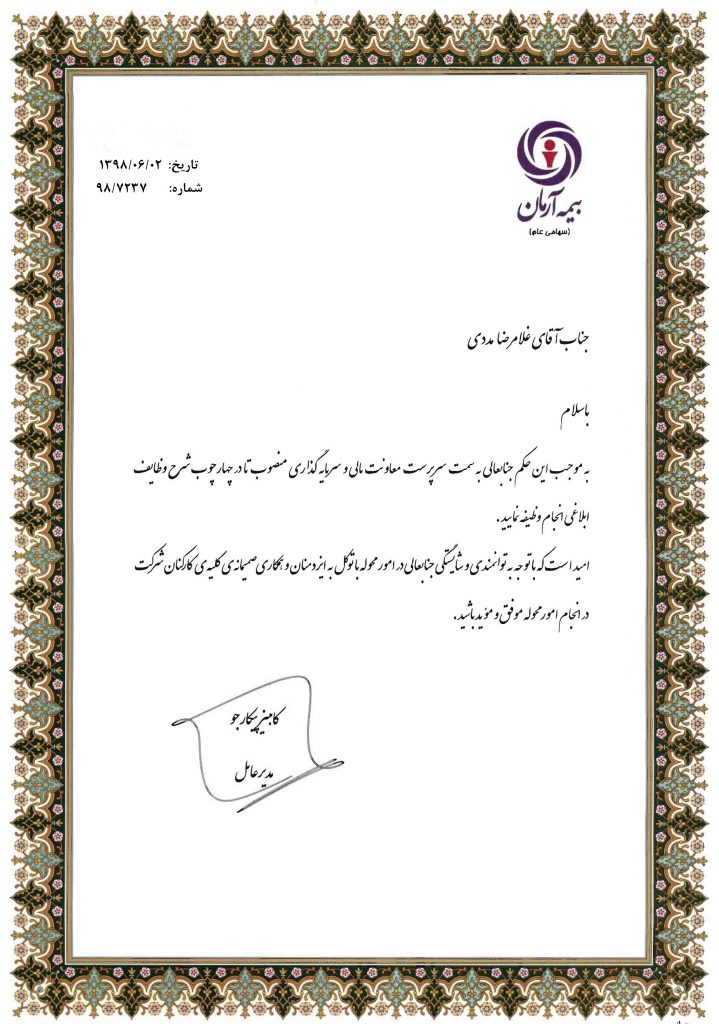 بیمه آرمان
(سهامی عام)
تاریخ: ۱۳۹۸/۰۶/۰۲
شماره: ۹۸/۷۲۳۷
جناب آقای غلامرضا مددی
باسلام
به موجب این حکم جنابعالی به سمت سرپرست معاونت مالی و سرمایه گذاری منصوب تا در چهارچوب شرح وظایف
ابلاغی انجام وظیفه نمایید.
امید است که با توجه به توانمندی و شایستگی جنابعالی در امور محوله با توکل به ایزد منان و همکاری صمیمانه ی کلیه ی کارکنان شرکت
در انجام امور محوله موفق و مؤید باشید.
کامبیز پیکارجو
مدیرعامل